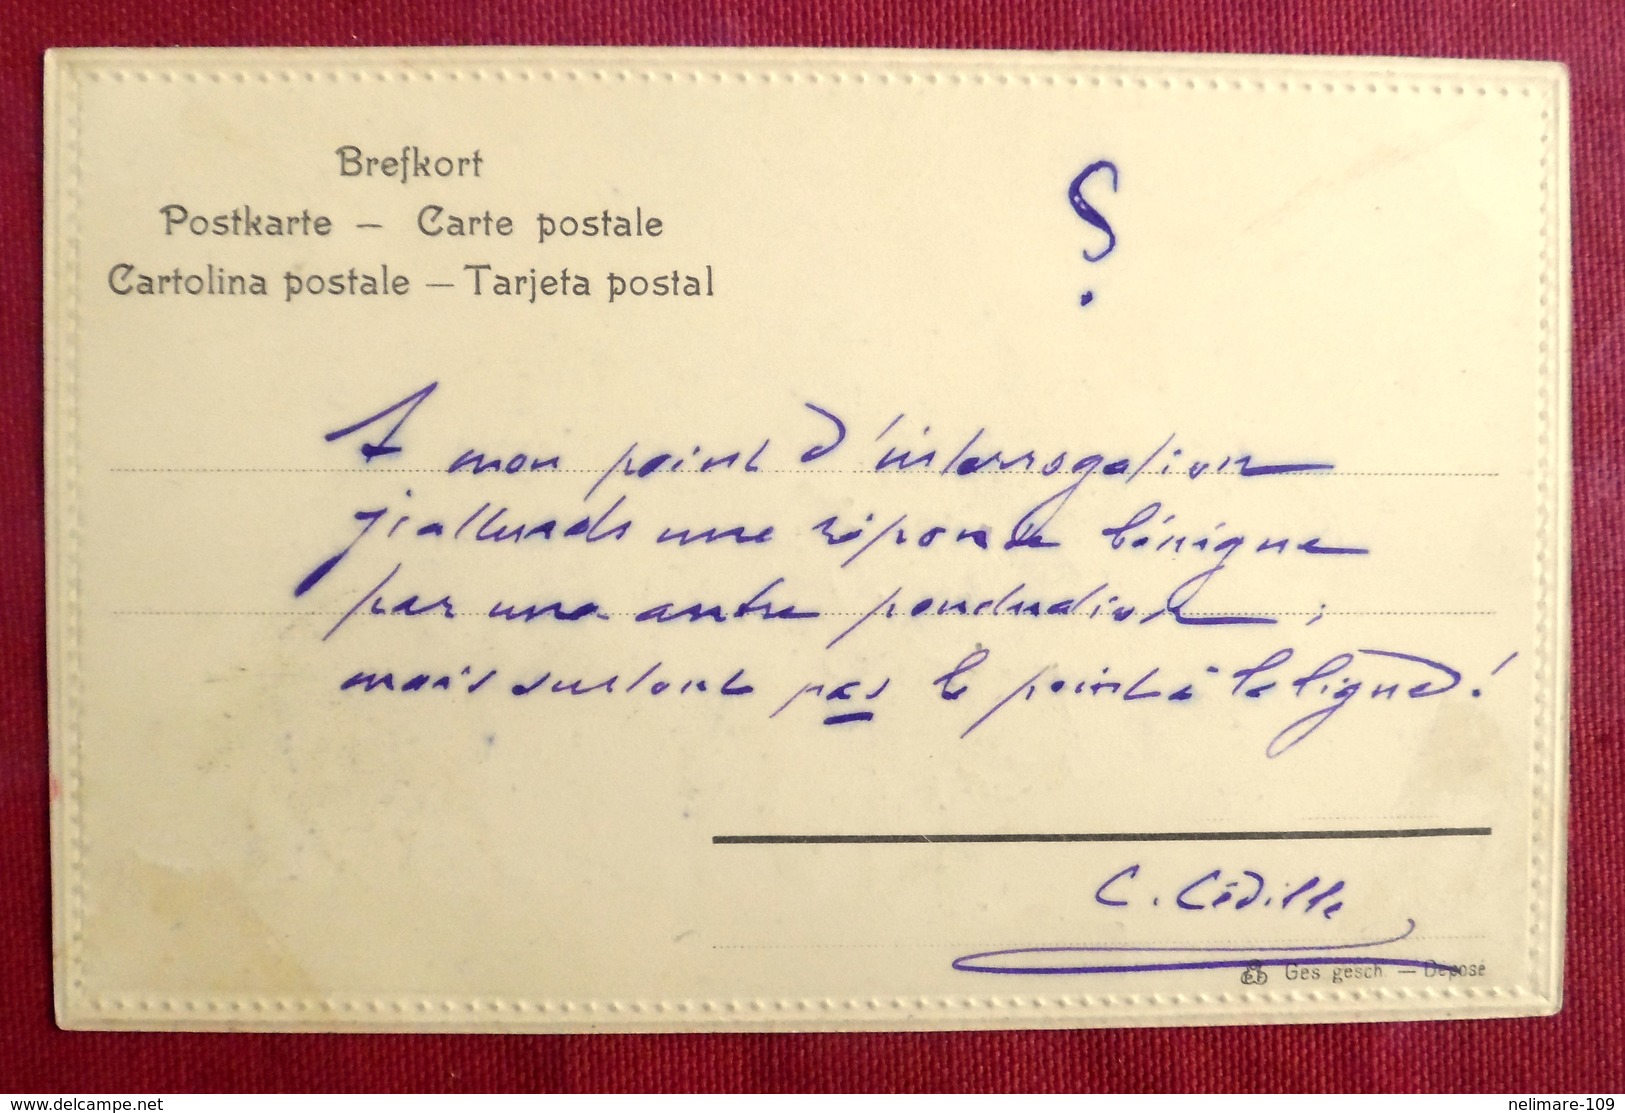 Brefkort
Postkarte – Carte postale
Cartolina postale – Tarjeta postal
?
A mon point d'interrogation
j'attends une réponse bénigne
par une autre ponctuation ;
mais surtout pas le point à la ligne !
C. Cédille
Ges gesch – Déposé
delcampe.net
nelimare-109